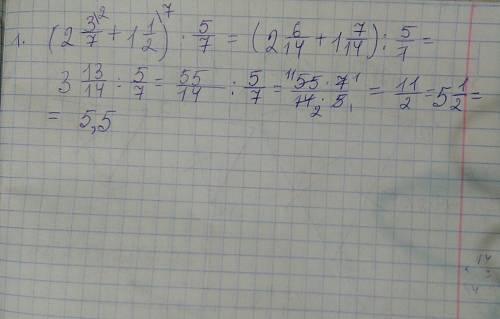 1. (2 3/7 \2 + 1 1/2 \7) : 5/7 = (2 6/14 + 1 7/14) : 5/7 =
3 13/14 : 5/7 = 55/14 : 5/7 = 11 55 · 7 1 / 14 2 · 5 1 = 11/2 = 5 1/2 =
= 5,5